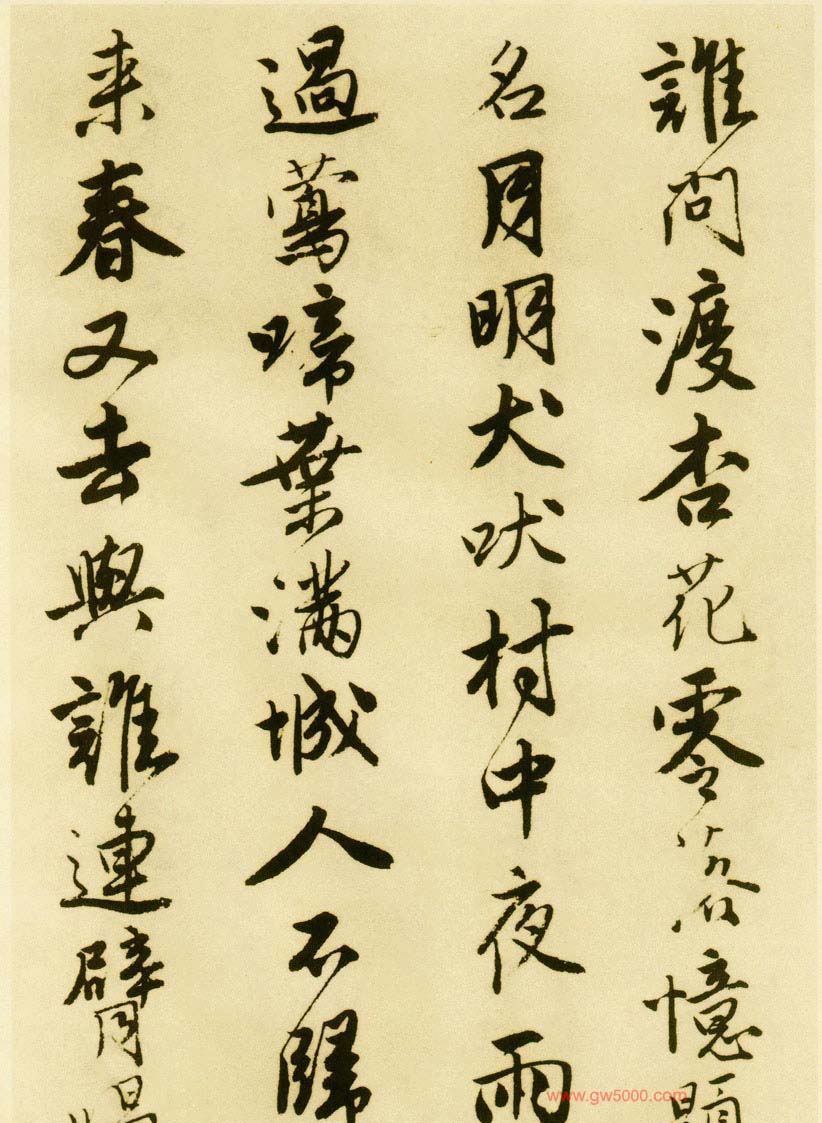 誰問渡杏花零落憶題
名月明犬吠村中夜雨
過鶯啼葉滿城人不歸
来春又去與誰連臂
www.gw5000.com